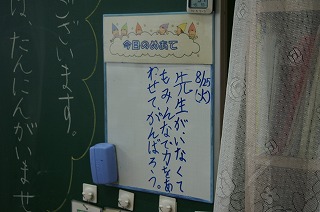 今日のめあて
8/25
(火)
先生がいなくて
もみんなで力をあ
わせてがんばろう。
ございます。
は、たんにんがいませ